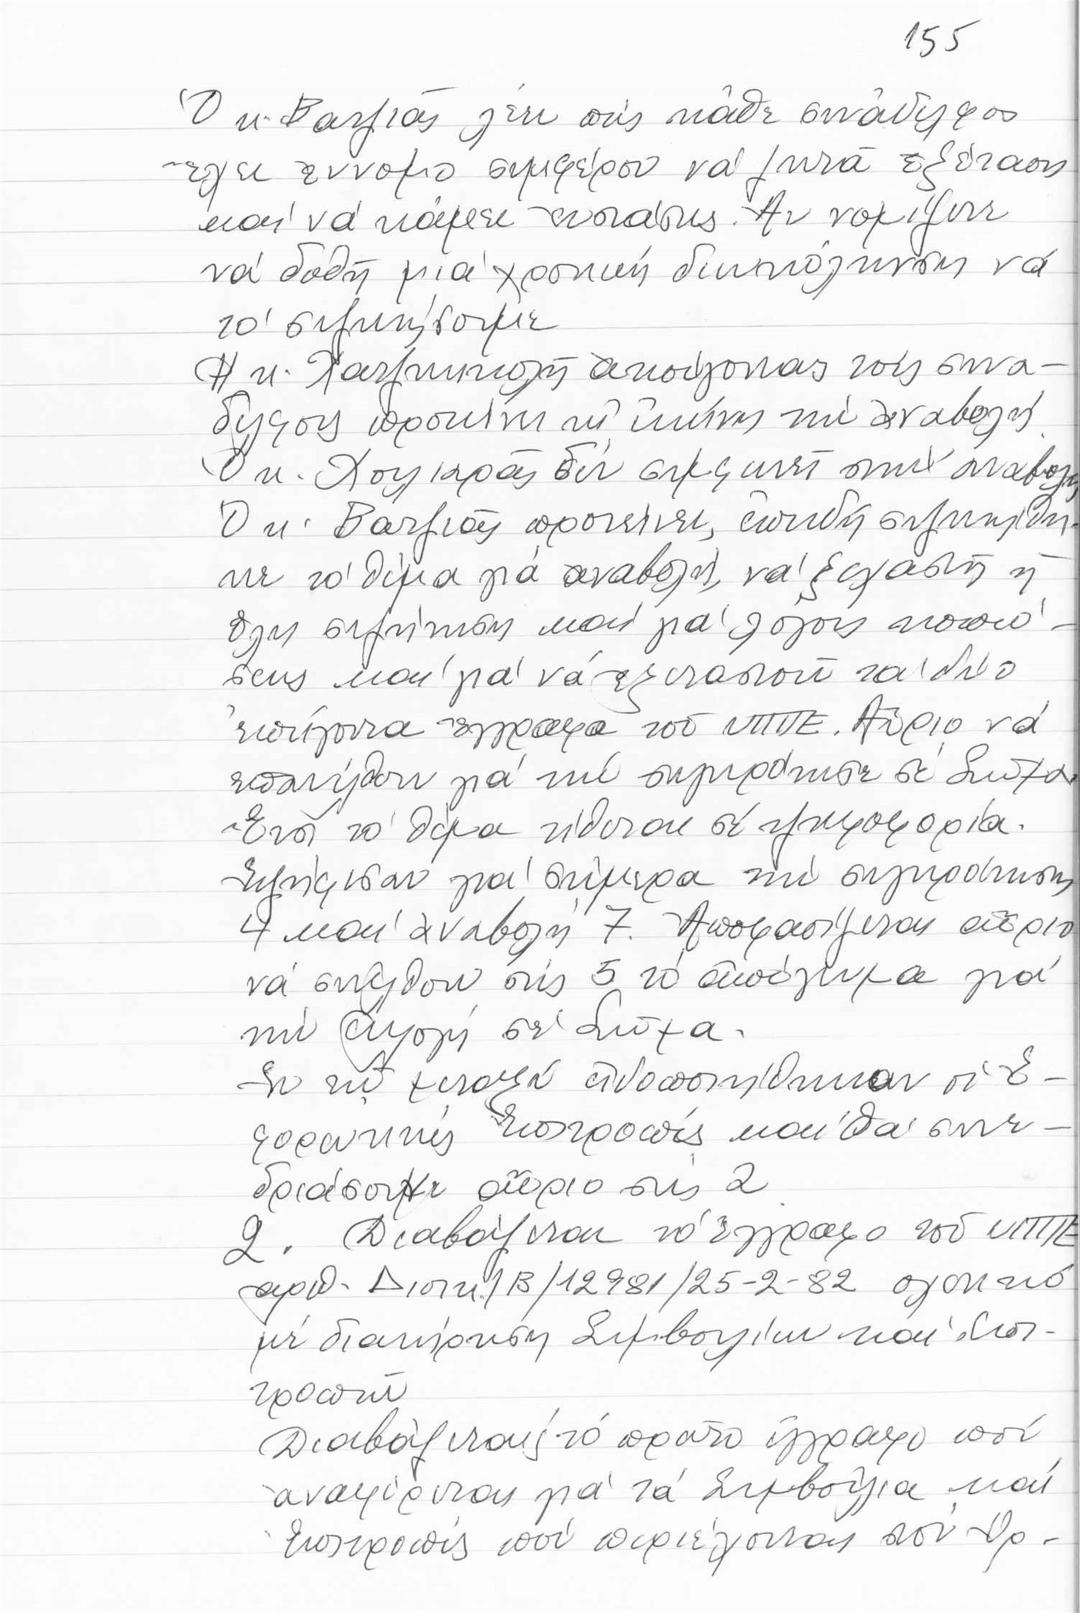 155
Ὁ κ. Βατζιᾶς λέει πώς κάθε συνάδελφος
ἔχει ἔννομο συμφέρον νά ζητᾶ ἐξέταση
καί νά κάμει ἐνστάσεις. Ἄν νομίζετε
νά δοθῆ μιά χρονική διευκόλυνση νά
τό συζητήσουμε
Ἡ κ. ἀκούγοντας τούς συνα-
δέλφους προτείνει κι ἐκείνη τήν ἀναβολή.
Ὁ κ. Χουλιαρᾶς δέν συμφωνεῖ στήν ἀναβολή
Ὁ κ. Βατζιᾶς προτείνει, ἐπειδή συζητήθη-
κε τό θέμα γιά ἀναβολή, νά ξεχαστῆ ἡ
ὅλη συζήτηση καί γιά λόγους κοπώ-
σεως καί γιά νά ἐξεταστοῦν τά δύο
ἐπείγοντα ἔγγραφα τοῦ ΥΠΠΕ. Αὔριο νά
ἐπανέλθουν γιά τήν συγκρότηση σέ Σῶμα.
Ἔτσι τό θέμα τίθεται σέ ψηφοφορία.
Ἐψήφισαν γιά σήμερα τήν συγκρότηση
4 καί ἀναβολή 7. Ἀποφασίζεται αὔριο
νά συνέλθουν στίς 5 τό ἀπόγευμα γιά
τήν ἐκλογή σέ Σῶμα.
Ἐν τῷ μεταξύ εἰδοποιήθηκαν οἱ Ἐ-
φορευτικές Ἐπιτροπές καί θά συνε-
δριάσουν αὔριο στίς 2
2. Διαβάζεται τό ἔγγραφο τοῦ ΥΠΠΕ
ἀριθ. Διοικ/Β/12981/25-2-82 σχετικό
μέ διατήρηση Συμβουλίων καί Ἐπι-
τροπῶν
Διαβάζεται τό πρῶτο ἔγγραφο πού
ἀναφέρεται γιά τά Συμβούλια καί
Ἐπιτροπές πού περιέχονται στόν Ὀρ-